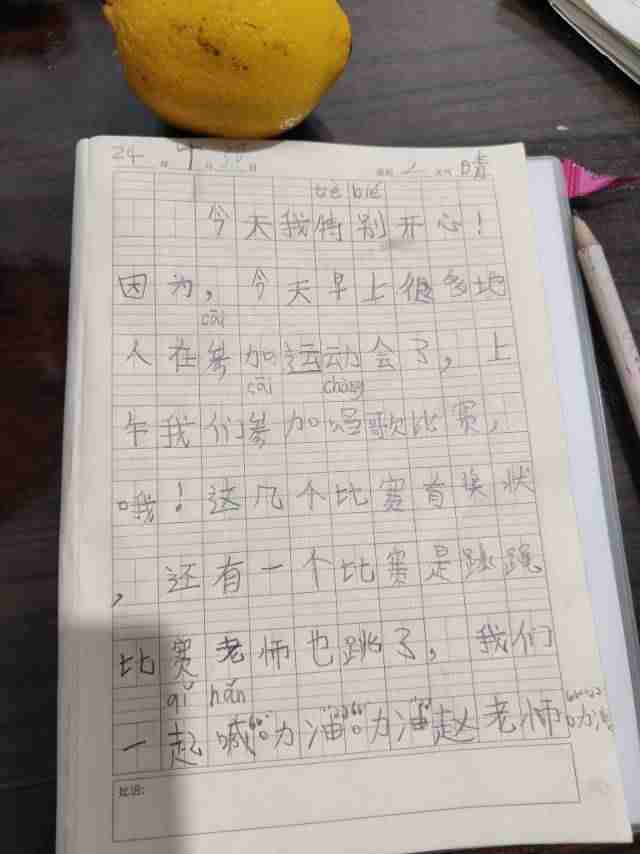 24 晴
tè bié
今天我特别开心!
因为,今天早上很多地
cāi
人在参加运动会了,上
cāi chàng
午我们参加唱歌比赛,
哦!这几个比赛有奖状
,还有一个比赛是跳绳
比赛老师也跳了,我们
qǐ hǎn
一起喊:“加油”“加油赵老师
批语: